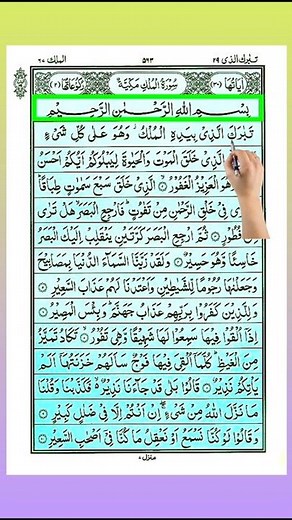 تبٰرك الذى ٢٩ ٥٦٣ الملك ٦٧
اٰيَاتُهَا (٣٠) سُوْرَةُ الْمُلْكِ مَكِّيَّةٌ رُكُوْعَاتُهَا (٢)
بِسْمِ اللّٰهِ الرَّحْمٰنِ الرَّحِيْمِ
تَبٰرَكَ الَّذِيْ بِيَدِهِ الْمُلْكُ وَهُوَ عَلٰى كُلِّ شَيْءٍ
الَّذِيْ خَلَقَ الْمَوْتَ وَالْحَيٰوةَ لِيَبْلُوَكُمْ اَيُّكُمْ اَحْسَنُ
وَهُوَ الْعَزِيْزُ الْغَفُوْرُ ۝ الَّذِيْ خَلَقَ سَبْعَ سَمٰوٰتٍ طِبَاقًا
فِيْ خَلْقِ الرَّحْمٰنِ مِنْ تَفٰوُتٍ فَارْجِعِ الْبَصَرَ هَلْ تَرٰى
فُطُوْرٍ ۝ ثُمَّ ارْجِعِ الْبَصَرَ كَرَّتَيْنِ يَنْقَلِبْ اِلَيْكَ الْبَصَرُ
خَاسِئًا وَّهُوَ حَسِيْرٌ ۝ وَلَقَدْ زَيَّنَّا السَّمَآءَ الدُّنْيَا بِمَصَابِيْحَ
وَجَعَلْنٰهَا رُجُوْمًا لِّلشَّيٰطِيْنِ وَاَعْتَدْنَا لَهُمْ عَذَابَ السَّعِيْرِ ۝
وَلِلَّذِيْنَ كَفَرُوْا بِرَبِّهِمْ عَذَابُ جَهَنَّمَ وَبِئْسَ الْمَصِيْرُ ۝
اِذَآ اُلْقُوْا فِيْهَا سَمِعُوْا لَهَا شَهِيْقًا وَّهِيَ تَفُوْرُ ۝ تَكَادُ تَمَيَّزُ
مِنَ الْغَيْظِ كُلَّمَآ اُلْقِيَ فِيْهَا فَوْجٌ سَاَلَهُمْ خَزَنَتُهَآ اَلَمْ
يَاْتِكُمْ نَذِيْرٌ ۝ قَالُوْا بَلٰى قَدْ جَآءَنَا نَذِيْرٌ فَكَذَّبْنَا وَقُلْنَا
مَا نَزَّلَ اللّٰهُ مِنْ شَيْءٍ اِنْ اَنْتُمْ اِلَّا فِيْ ضَلٰلٍ كَبِيْرٍ ۝
وَقَالُوْا لَوْ كُنَّا نَسْمَعُ اَوْ نَعْقِلُ مَا كُنَّا فِيْٓ اَصْحٰبِ السَّعِيْرِ ۝
منزل ٧